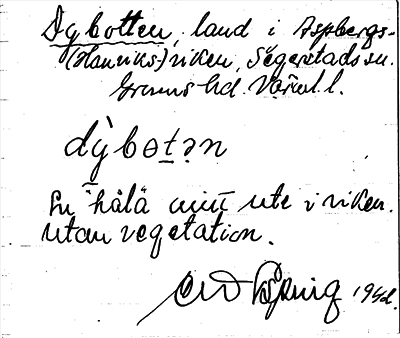 Dybotten, land i Aspbergs-
(Henriks)viken, Segerstads sn.
Grums hd. Värml. l.
dỳbot̲ən
En håla mitt ute i viken
utan vegetation.
1942.